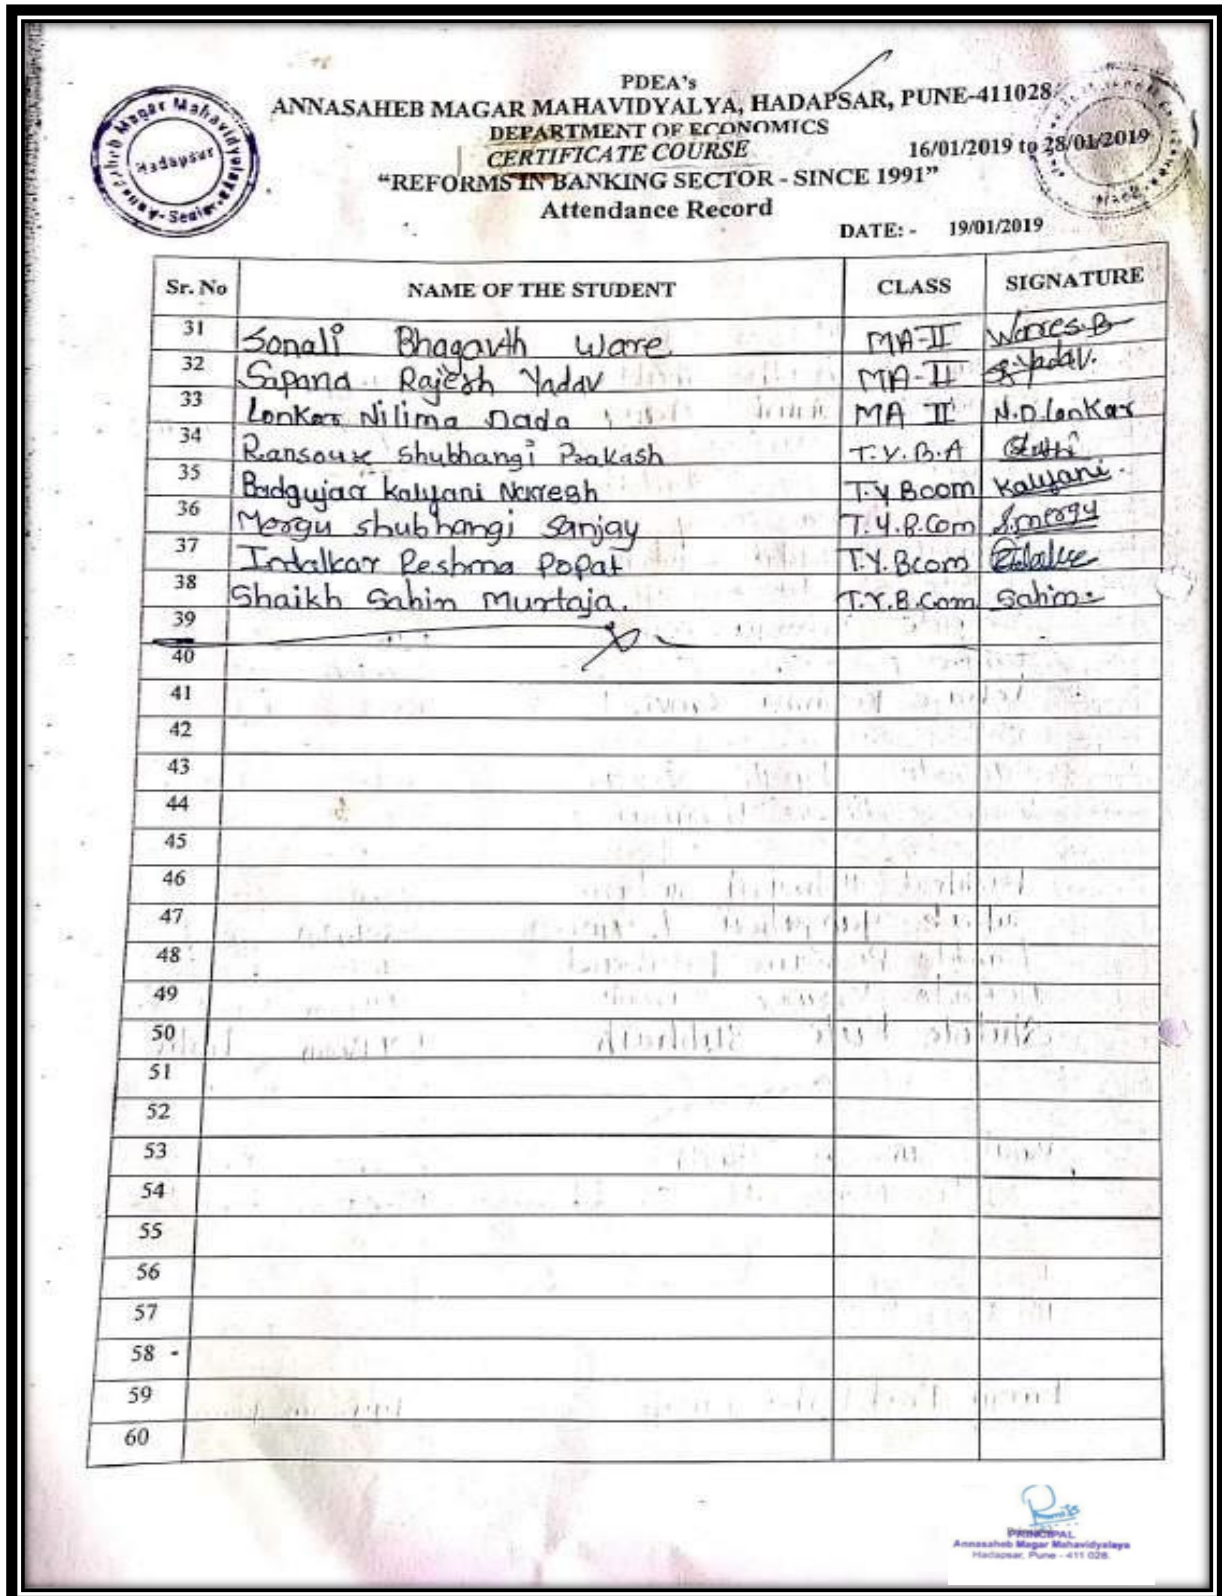 PDEA's
ANNASAHEB MAGAR MAHAVIDYALYA, HADAPSAR, PUNE-411028
DEPARTMENT OF ECONOMICS
CERTIFICATE COURSE 16/01/2019 to 28/01/2019
“REFORMS IN BANKING SECTOR - SINCE 1991”
Attendance Record
DATE: - 19/01/2019
Hadapsar
Sr. No NAME OF THE STUDENT CLASS SIGNATURE
31 Sonali Bhagavth Ware. MA-II Wares.B
32 Sapana Rajesh Yadav MA-II S.Yadav.
33 Lonkar Nilima Dada MA II N.D.Lonkar
34 Ransoure Shubhangi Prakash T.Y.B.A
35 Badgujar Kalyani Narresh T.Y Bcom Kalyani.
36 Mergu Shubhangi Sanjay T.Y.B.Com S.mergu
37 Indalkar Reshma Popat T.Y.Bcom
38 Shaikh Sahin Murtaja. T.Y.B.Com Sahin
39
40
41
42
43
44
45
46
47
48
49
50
51
52
53
54
55
56
57
58 -
59
60
PRINCIPAL
Annasaheb Magar Mahavidyalaya
Hadapsar, Pune - 411 028.